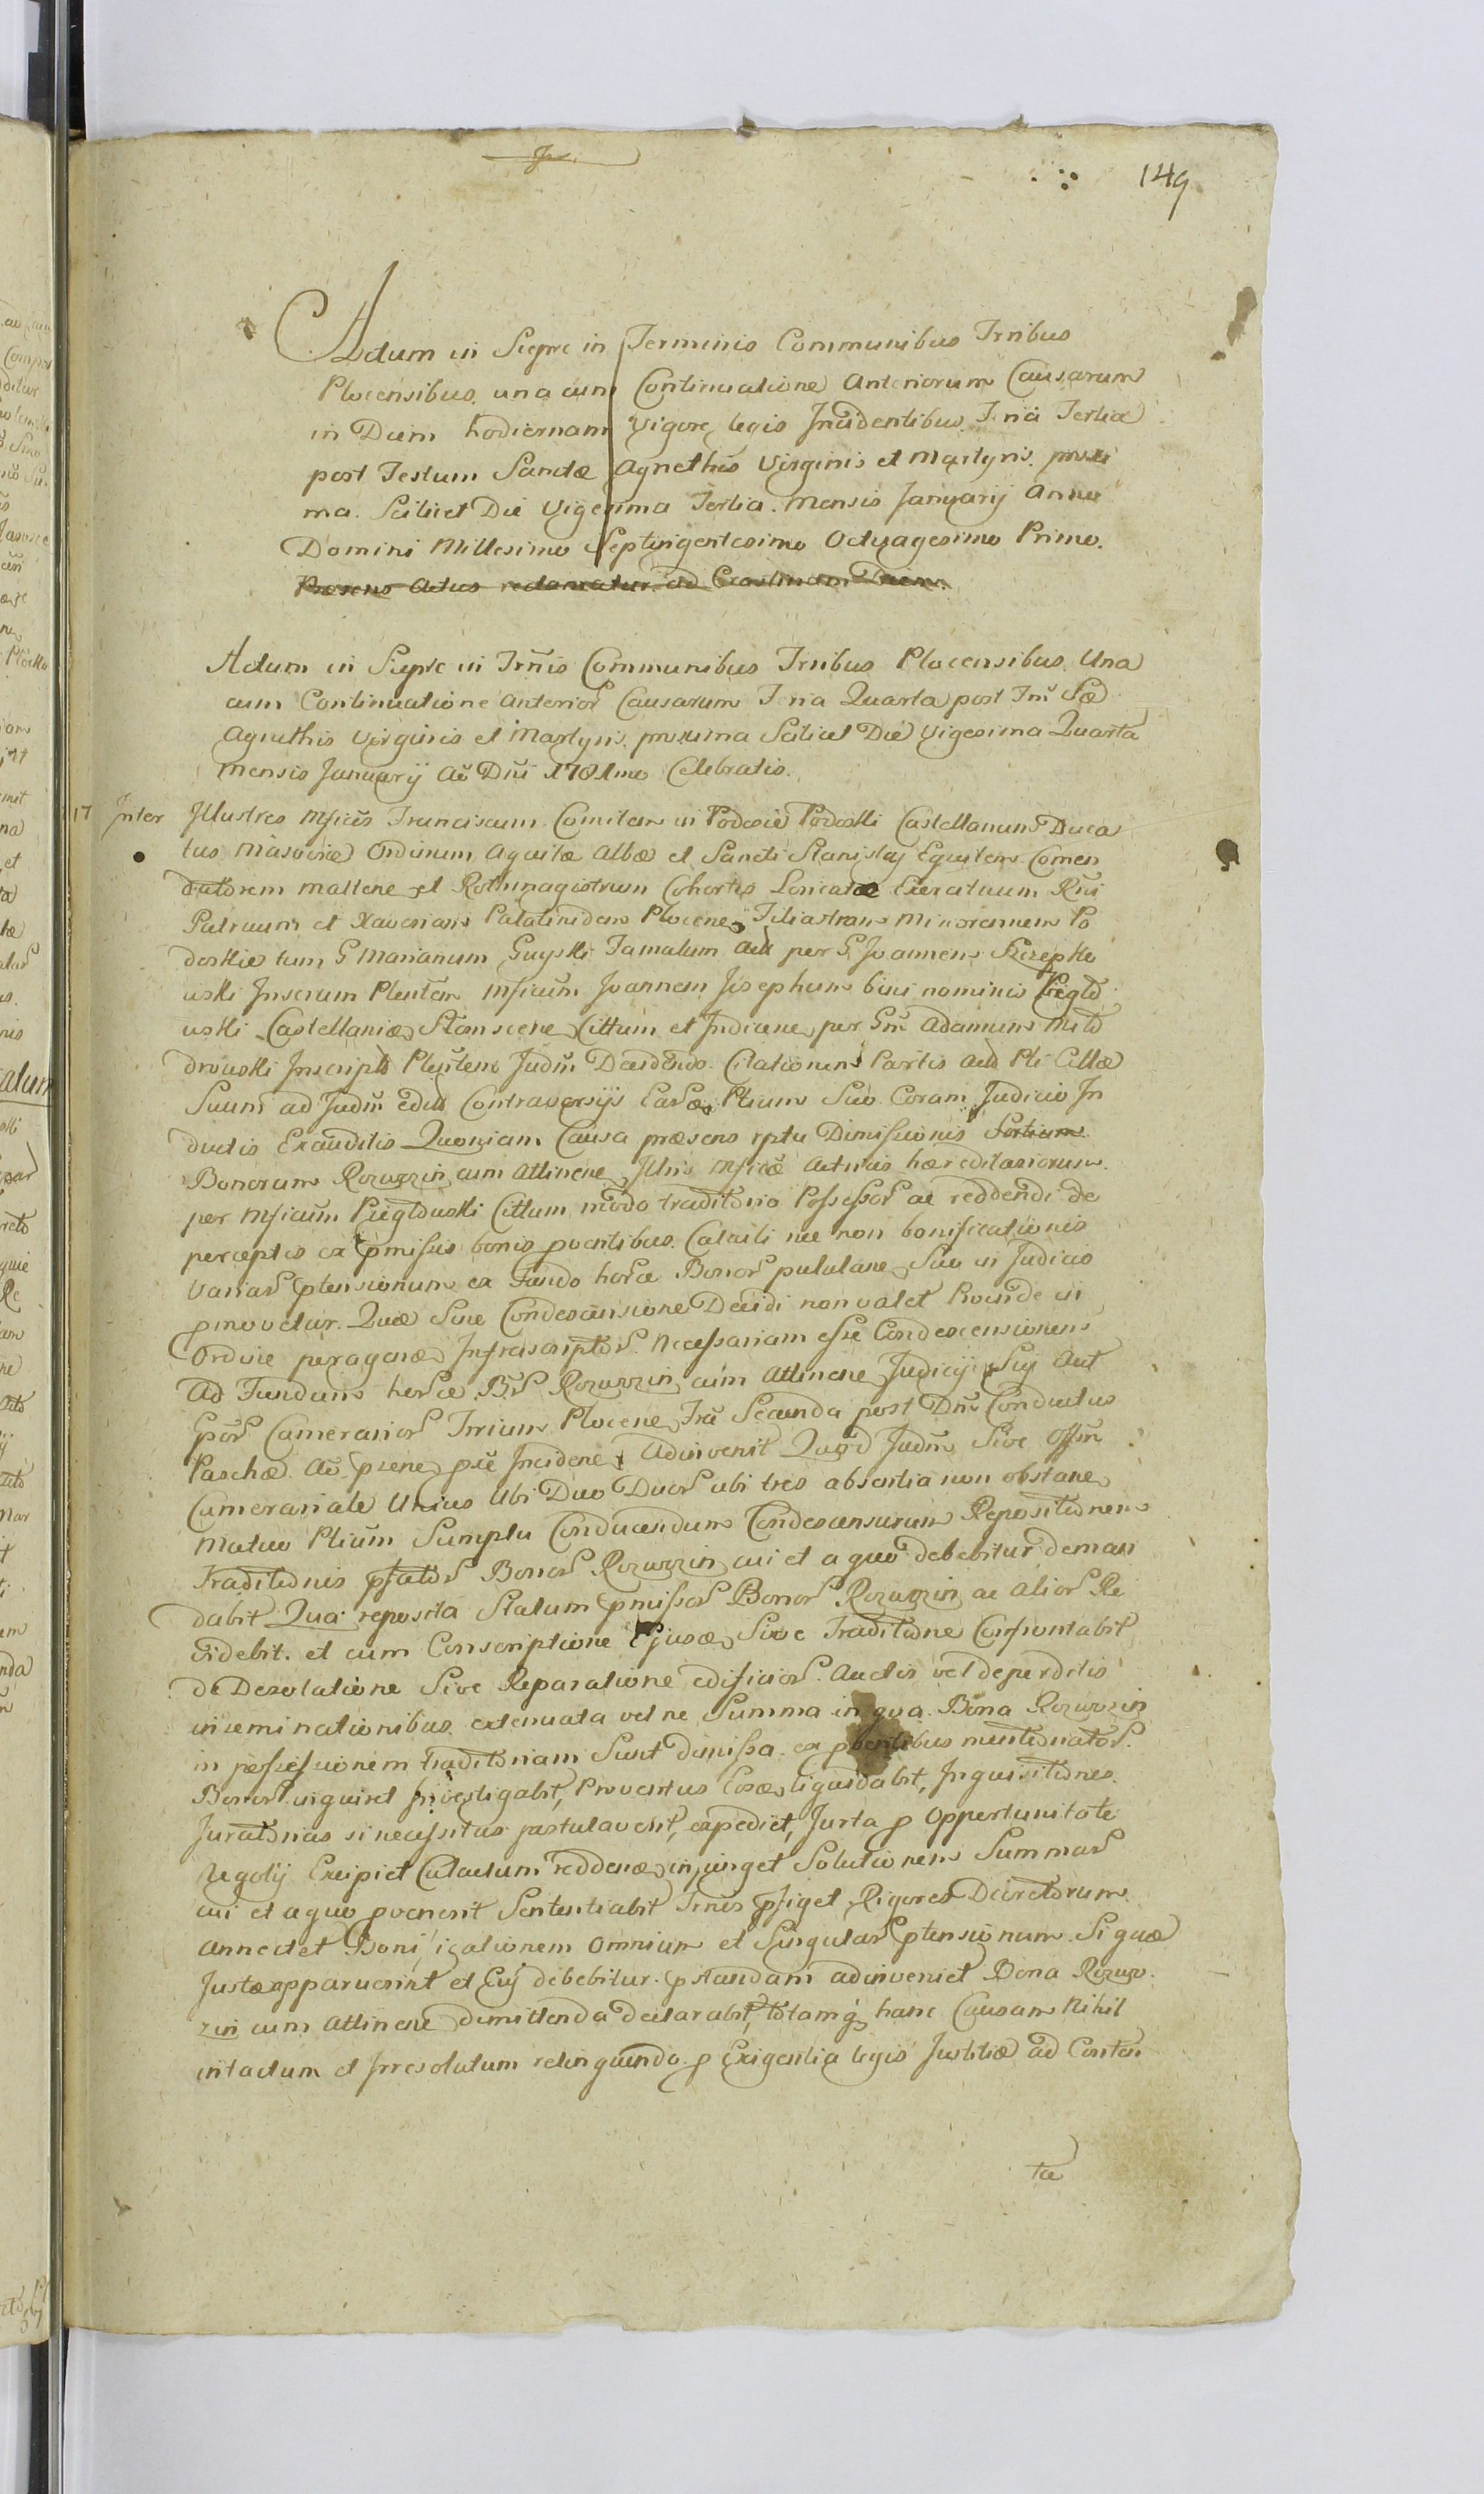 149
Actum in Sieprc in Terminis Communibus Trribus
Plocensibus una cum Continuatione Anteriorum Causarum
in Diem hodiernam Vigore legis Incidentibus Feria Tertia
post Festum Sanctæ Agnethis Virginis et Martyris proxi
ma Scilicet Die Vigesima Tertia Mensis Januarij Anno
Domini Millesimo Septingentesimo Octuagesimo Primo.
Præsens Actus reclamatur ad Crastinam Diem.
Actum in Sieprc in Trnis Communibus Trribus Plocensibus Una
cum Continuatione Anterior Causarum Feria Quarta post Fm Sæ
Agnethis Virginis et Martyris proxima Scilicet Die Vigesima Quarta
Mensis Januarij Aõ Dni 1781mo Celebratis.
17 Inter Illustres Mficũs Franciscum Comitem in Podosie Podoski Castellanum Duca
tus Masoviæ Ordinum Aquilæ Albæ et Sancti Stanislaj Equitem Comen
datorem Mallene et Rothmagistrum Cohortis Loricatæ Exercituum Rni
Patruum et Xaverium Palatinidem Plocene Filiastrum Minorennem Po
doskie tum G Marianum Guyski Famatum Act per G Joannem Szczepko
uski Inserum Plentem Mficũm Joannem Josephum bini nominis Piegło
uski Castellaniæ Cittum et Indicene per Gm Adamum Mło
drouski Inscript Plentem Judm Decidendo Citationem Partis Act Pti Cittæ
Suum ad Judm edit Controversijs Earæ Ptium Suo Coram Judicio In
ductis Exauditis Quoniam Causa præsens rptu Dimissionis Sortium
Bonorum Rozuzzin cum Attinene Illris Mficæ Actricis hæreditariorum
per Mficũm Piegłouski Cittum modo traditorio Possessor ac reddendi de
perceptis ex pmissis bonis pventibus Calculi nec non bonificationis
Variar ptensionum ex Fundo horce Bonor pululane Suo in Judicio
pmovetur. Quæ Sine Condescensione Decidi non valet Proinde in
Ordine peragenæ Infrascriptor Necessariam esse Condescensionem
Ad Fundum horce Br Rozuzzin cum Attinene Judicij Sui Aut
Gpor Camerarior Trrium Plocene Fra Secunda post Dm Conductus
Paschæ Aõ psene pse Incidene Adinvenit Quod Judm Sive Offm
Camerariale Unius Ubi Duo Duor ubi tres absentia non obstane
Mutuo Ptium Sumptu Conducendum Condescensurum Repositionem
Traditionis pfator Bonor Rozuzzin cui et a quo debebitur deman
dabit Qua reposita Statum pmissor Bonor Rozuzzin ac Alior Re
videbit et cum Conscriptione Ejusæ Sive Traditione Confrontabit
de Desolatione Sive Reparatione edificior Auctis vel deperditis
inseminationibus extenuata vel ne Summa in qua Bona Rozuzzin
in possessionem traditoriam Sunt dimissa ex pventibus mentionator
Bonor inquiret Investigabit, Proventus Eosæ liquidabit, Inquisitiones
Juratorias si necessitas postulaverit, expediet, Juxta p Opportunitate
Negotij Excipiet Calculum reddenæ injunget Solutionem Summar
cui et a quo pvenerit Sententiabit Trnis pfiget Rigores Decretorum
Annectet Bonificationem Omnium et Singular ptensionum Si quæ
Justæ apparuerint et Cuj debebitur pstandam adinveniet Bona Rozuz
zin cum Attinene dimittenda declarabit, totamq hanc Causam Nihil
intactum et Irresolutum relinquendo p Exigentia legis Justitiæ ad Conten
ta